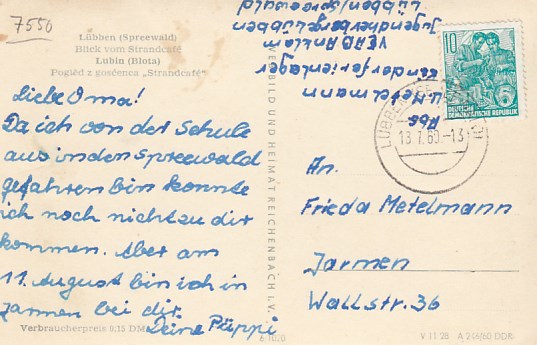 7550
Lübben (Spreewald)
Blick vom Strandcafé
Lubin (Błota)
Pogléd z gosćenca „Strandcafé“
Liebe Oma!
Da ich von der Schule
aus in den Spreewald
gefahren bin konnte
ich noch nicht zu dir
kommen. Aber am
11. August bin ich in
Jarmen bei dir.
Deine Püppi
Verbraucherpreis 0,15 DM
VERB BILD UND HEIMAT REICHENBACH I. V.
6 1000
Abs
U. Metelmann
Kinderferienlager
VEAB Anklam
Jugendherberge Lübben
Lübben/Spreewald
10
DEUTSCHE
DEMOKRATISCHE REPUBLIK
LÜBBEN
18.7.60.-13
An.
Frieda Metelmann
Jarmen
Wallstr. 36
V 11 28 A 246/60 DDR